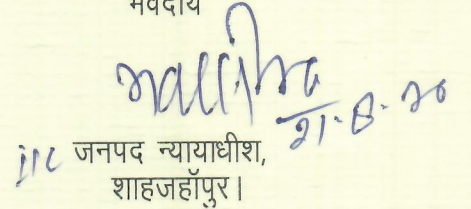 भवदीय
21.8.20
I/C जनपद न्यायाधीश,
शाहजहाँपुर।